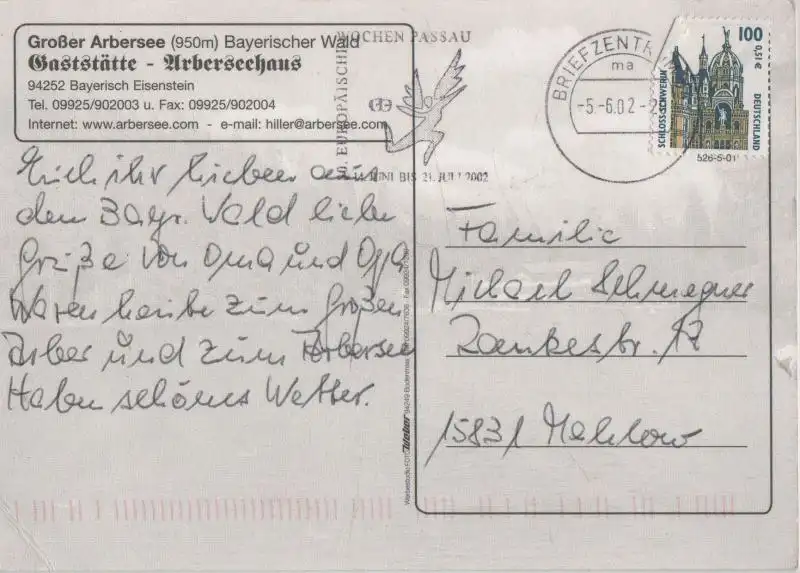 Großer Arbersee (950m) Bayerischer Wald
Gaststätte - Arberseehaus
94252 Bayerisch Eisenstein
Tel. 09925/902003 u. Fax: 09925/902004
Internet: www.arbersee.com - e-mail: hiller@arbersee.com
EUROPÄISCHE
WOCHEN PASSAU
JUNI BIS 21. JULI 2002
BRIEFZENTR
ma
-5.-6.02-2
100
0,51€
SCHLOSS SCHWERIN
DEUTSCHLAND
526-5-01
Euch ihr lieben aus
dem Bayr. Wald liebe
Grüße von Oma und Opa
Waren heute zum Großen
Arber und zum Arbersee
Haben schönes Wetter.
Werbestudio FOTO Weber 94249 Bodenmais
Familie
Michael
Zankestr. 17
15831 Mahlow